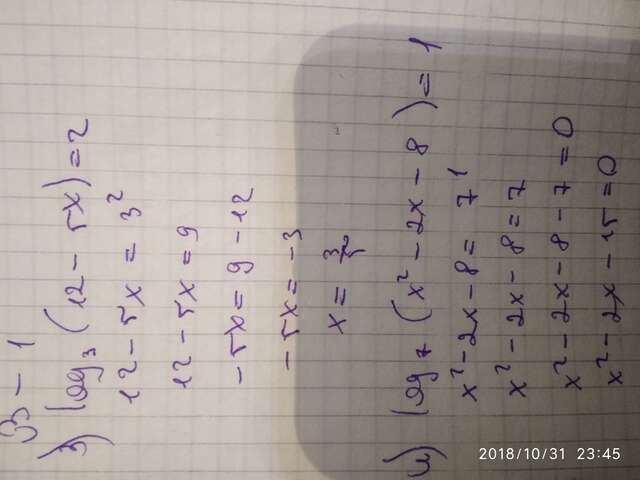 3) log₃ (12 - 5x) = 2
12 - 5x = 3²
12 - 5x = 9
-5x = 9 - 12
-5x = -3
x = 3/5
и) log₇ (x² - 2x - 8) = 1
x² - 2x - 8 = 7¹
x² - 2x - 8 = 7
x² - 2x - 8 - 7 = 0
x² - 2x - 15 = 0
2018/10/31 23:45